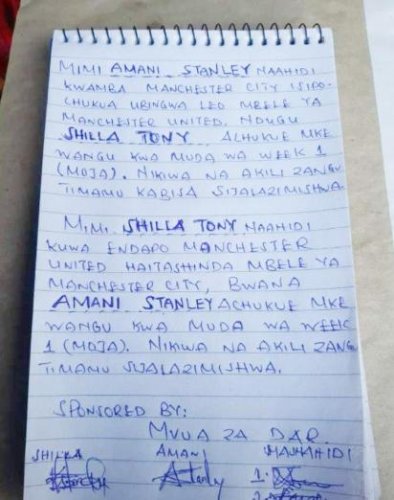 MIMI AMANI STANLEY NAAHIDI
KWAMBA MANCHESTER CITY ISIPO-
CHUKUA UBINGWA LEO MBELE YA
MANCHESTER UNITED. NDUGU
SHILLA TONY ACHUKUE MKE
WANGU KWA MUDA WA WEEK 1
(MOJA). NIKIWA NA AKILI ZANGU
TIMAMU KABISA SIJALAZIMISHWA.
MIMI SHILLA TONY NAAHIDI
KUWA ENDAPO MANCHESTER
UNITED HAITASHINDA MBELE YA
MANCHESTER CITY, BWANA
AMANI STANLEY ACHUKUE MKE
WANGU KWA MUDA WA WEEK
1 (MOJA). NIKIWA NA AKILI ZANGU
TIMAMU SIJALAZIMISHWA.
SPONSORED BY:
MVUA ZA DAR.
SHILLA AMANI MASHAHIDI
1.
2.